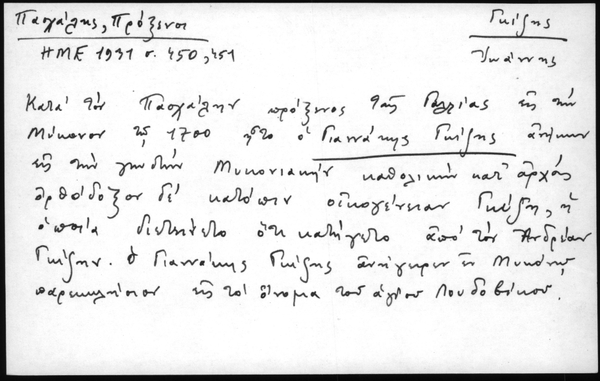 Πασχάλης, Πρόξενοι
Γκίζης
ΗΜΕ 1931 σ. 450, 451
Ἰωάννης
Κατά τόν Πασχάλην πρόξενος τῆς Γαλλίας εἰς τήν
Μύκονον τῷ 1700 ἦτο ὁ Γιαννάκης Γκίζης ἀνήκων
εἰς τήν γνωστήν Μυκονιακήν καθολικήν κατ' ἀρχάς
ὀρθόδοξον δέ κατόπιν οἰκογένειαν Γκίζη, ἡ
ὁποία διετείνετο ὅτι κατήγετο ἀπό τόν Ἀνδρέαν
Γκίζην. Ὁ Γιαννάκης Γκίζης ἀνήγειρεν ἐν Μυκόνῳ
παρεκκλήσιον εἰς τό ὄνομα τοῦ ἁγίου Λουδοβίκου.